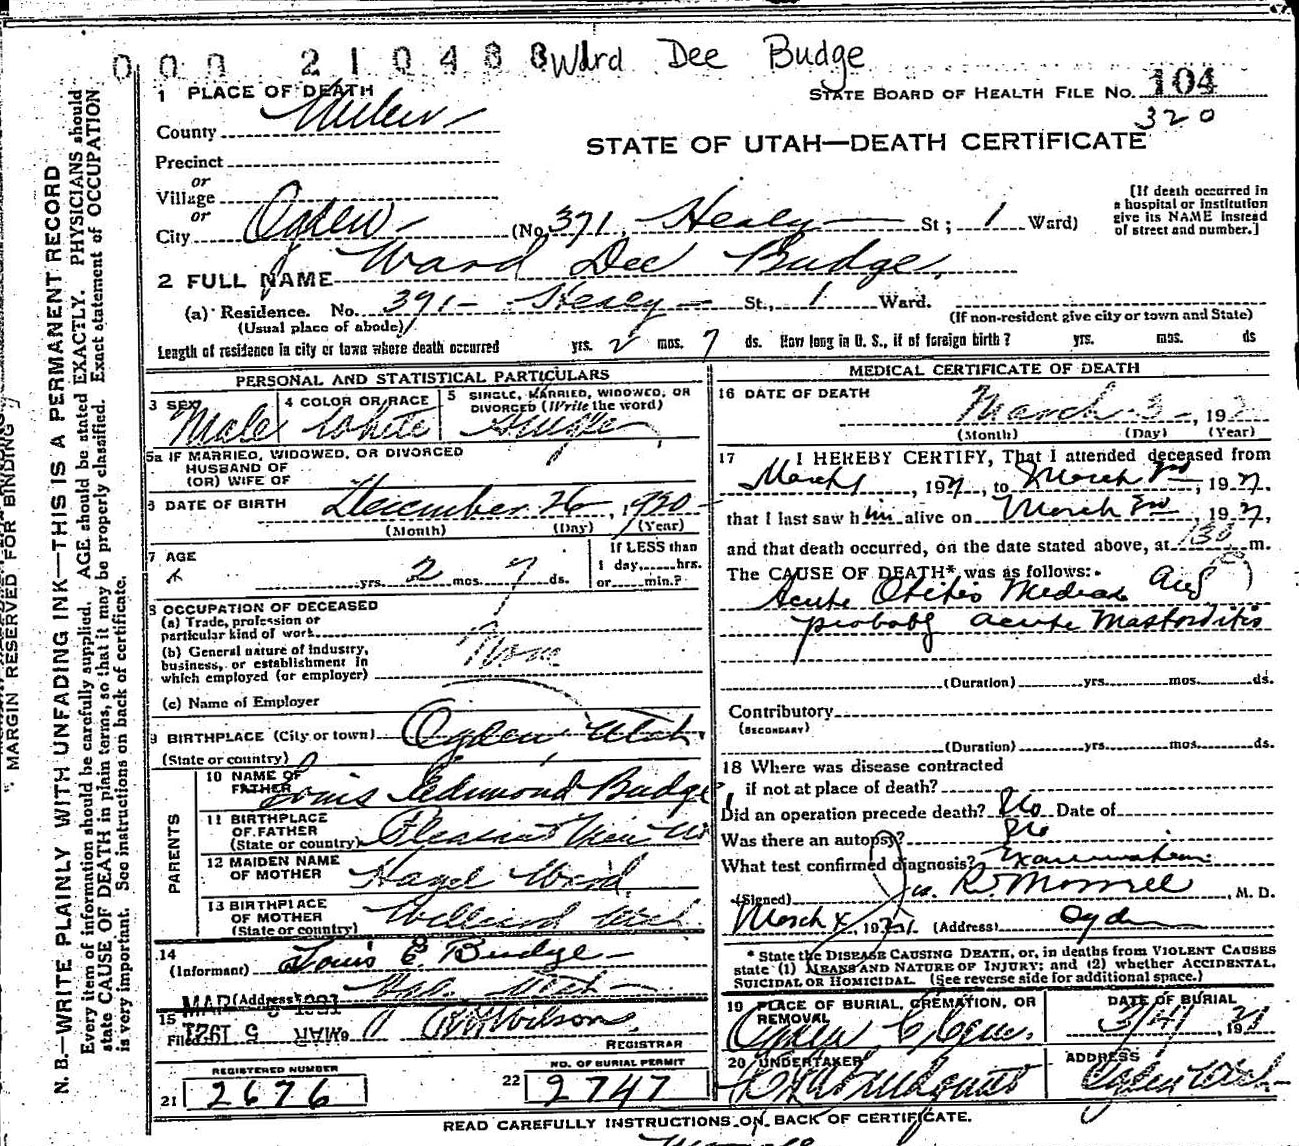 000 210488 Ward Dee Budge
1 PLACE OF DEATH
STATE BOARD OF HEALTH FILE NO. 104
320
County
STATE OF UTAH—DEATH CERTIFICATE
Precinct
or
Village
or
City Ogden (No. 371 Healy St; 1 Ward)
[If death occurred in
a hospital or institution
give its NAME instead
of street and number.]
2 FULL NAME Ward Dee Budge
(a) Residence. No. 391 Healy St., 1 Ward.
(Usual place of abode)
(If non-resident give city or town and State)
Length of residence in city or town where death occurred yrs. 2 mos. 7 ds. How long in U. S., if of foreign birth? yrs. mos. ds
PERSONAL AND STATISTICAL PARTICULARS
3 SEX Male
4 COLOR OR RACE White
5 SINGLE, MARRIED, WIDOWED, OR
DIVORCED (Write the word)
Single
5a IF MARRIED, WIDOWED, OR DIVORCED
HUSBAND OF
(OR) WIFE OF
6 DATE OF BIRTH December 26, 1930
(Month) (Day) (Year)
7 AGE
yrs. 2 mos. 7 ds.
If LESS than
1 day, hrs.
or min.?
8 OCCUPATION OF DECEASED
(a) Trade, profession or
particular kind of work
(b) General nature of industry,
business, or establishment in
which employed (or employer)
None
(c) Name of Employer
9 BIRTHPLACE (City or town) Ogden Utah
(State or country)
PARENTS
10 NAME OF
FATHER Louis Edmond Budge
11 BIRTHPLACE
OF FATHER
(State or country) Pleasant View Ut
12 MAIDEN NAME
OF MOTHER Hazel Ward
13 BIRTHPLACE
OF MOTHER
(State or country) Willard Utah
14
(Informant) Louis E Budge
(Address)
15
Filed MAR 5 1931 R W Wilson
REGISTRAR
REGISTERED NUMBER
21 2676
NO. OF BURIAL PERMIT
22 2747
MEDICAL CERTIFICATE OF DEATH
16 DATE OF DEATH
March 3, 193
(Month) (Day) (Year)
17 I HEREBY CERTIFY, That I attended deceased from
March, 19 to March 3rd, 19
that I last saw him alive on March 3rd 19
and that death occurred, on the date stated above, at 130 m.
The CAUSE OF DEATH* was as follows:
Acute Otitis Media and
probably acute Mastoiditis
(Duration) yrs. mos. ds.
Contributory
(SECONDARY)
(Duration) yrs. mos. ds.
18 Where was disease contracted
if not at place of death?
Did an operation precede death? No Date of
Was there an autopsy? No
What test confirmed diagnosis? Examination
(Signed) R. Morrell, M. D.
March 4, 1931 (Address) Ogden
* State the DISEASE CAUSING DEATH, or, in deaths from VIOLENT CAUSES
state (1) MEANS AND NATURE OF INJURY; and (2) whether ACCIDENTAL,
SUICIDAL OR HOMICIDAL. (See reverse side for additional space.)
19 PLACE OF BURIAL, CREMATION, OR
REMOVAL
Ogden
DATE OF BURIAL
3/4, 1931
20 UNDERTAKER
ADDRESS
Ogden Utah
READ CAREFULLY INSTRUCTIONS ON BACK OF CERTIFICATE.
MARGIN RESERVED FOR BINDING
N. B.—WRITE PLAINLY WITH UNFADING INK—THIS IS A PERMANENT RECORD
Every item of information should be carefully supplied. AGE should be stated EXACTLY. PHYSICIANS should
state CAUSE OF DEATH in plain terms, so that it may be properly classified. Exact statement of OCCUPATION
is very important. See instructions on back of certificate.